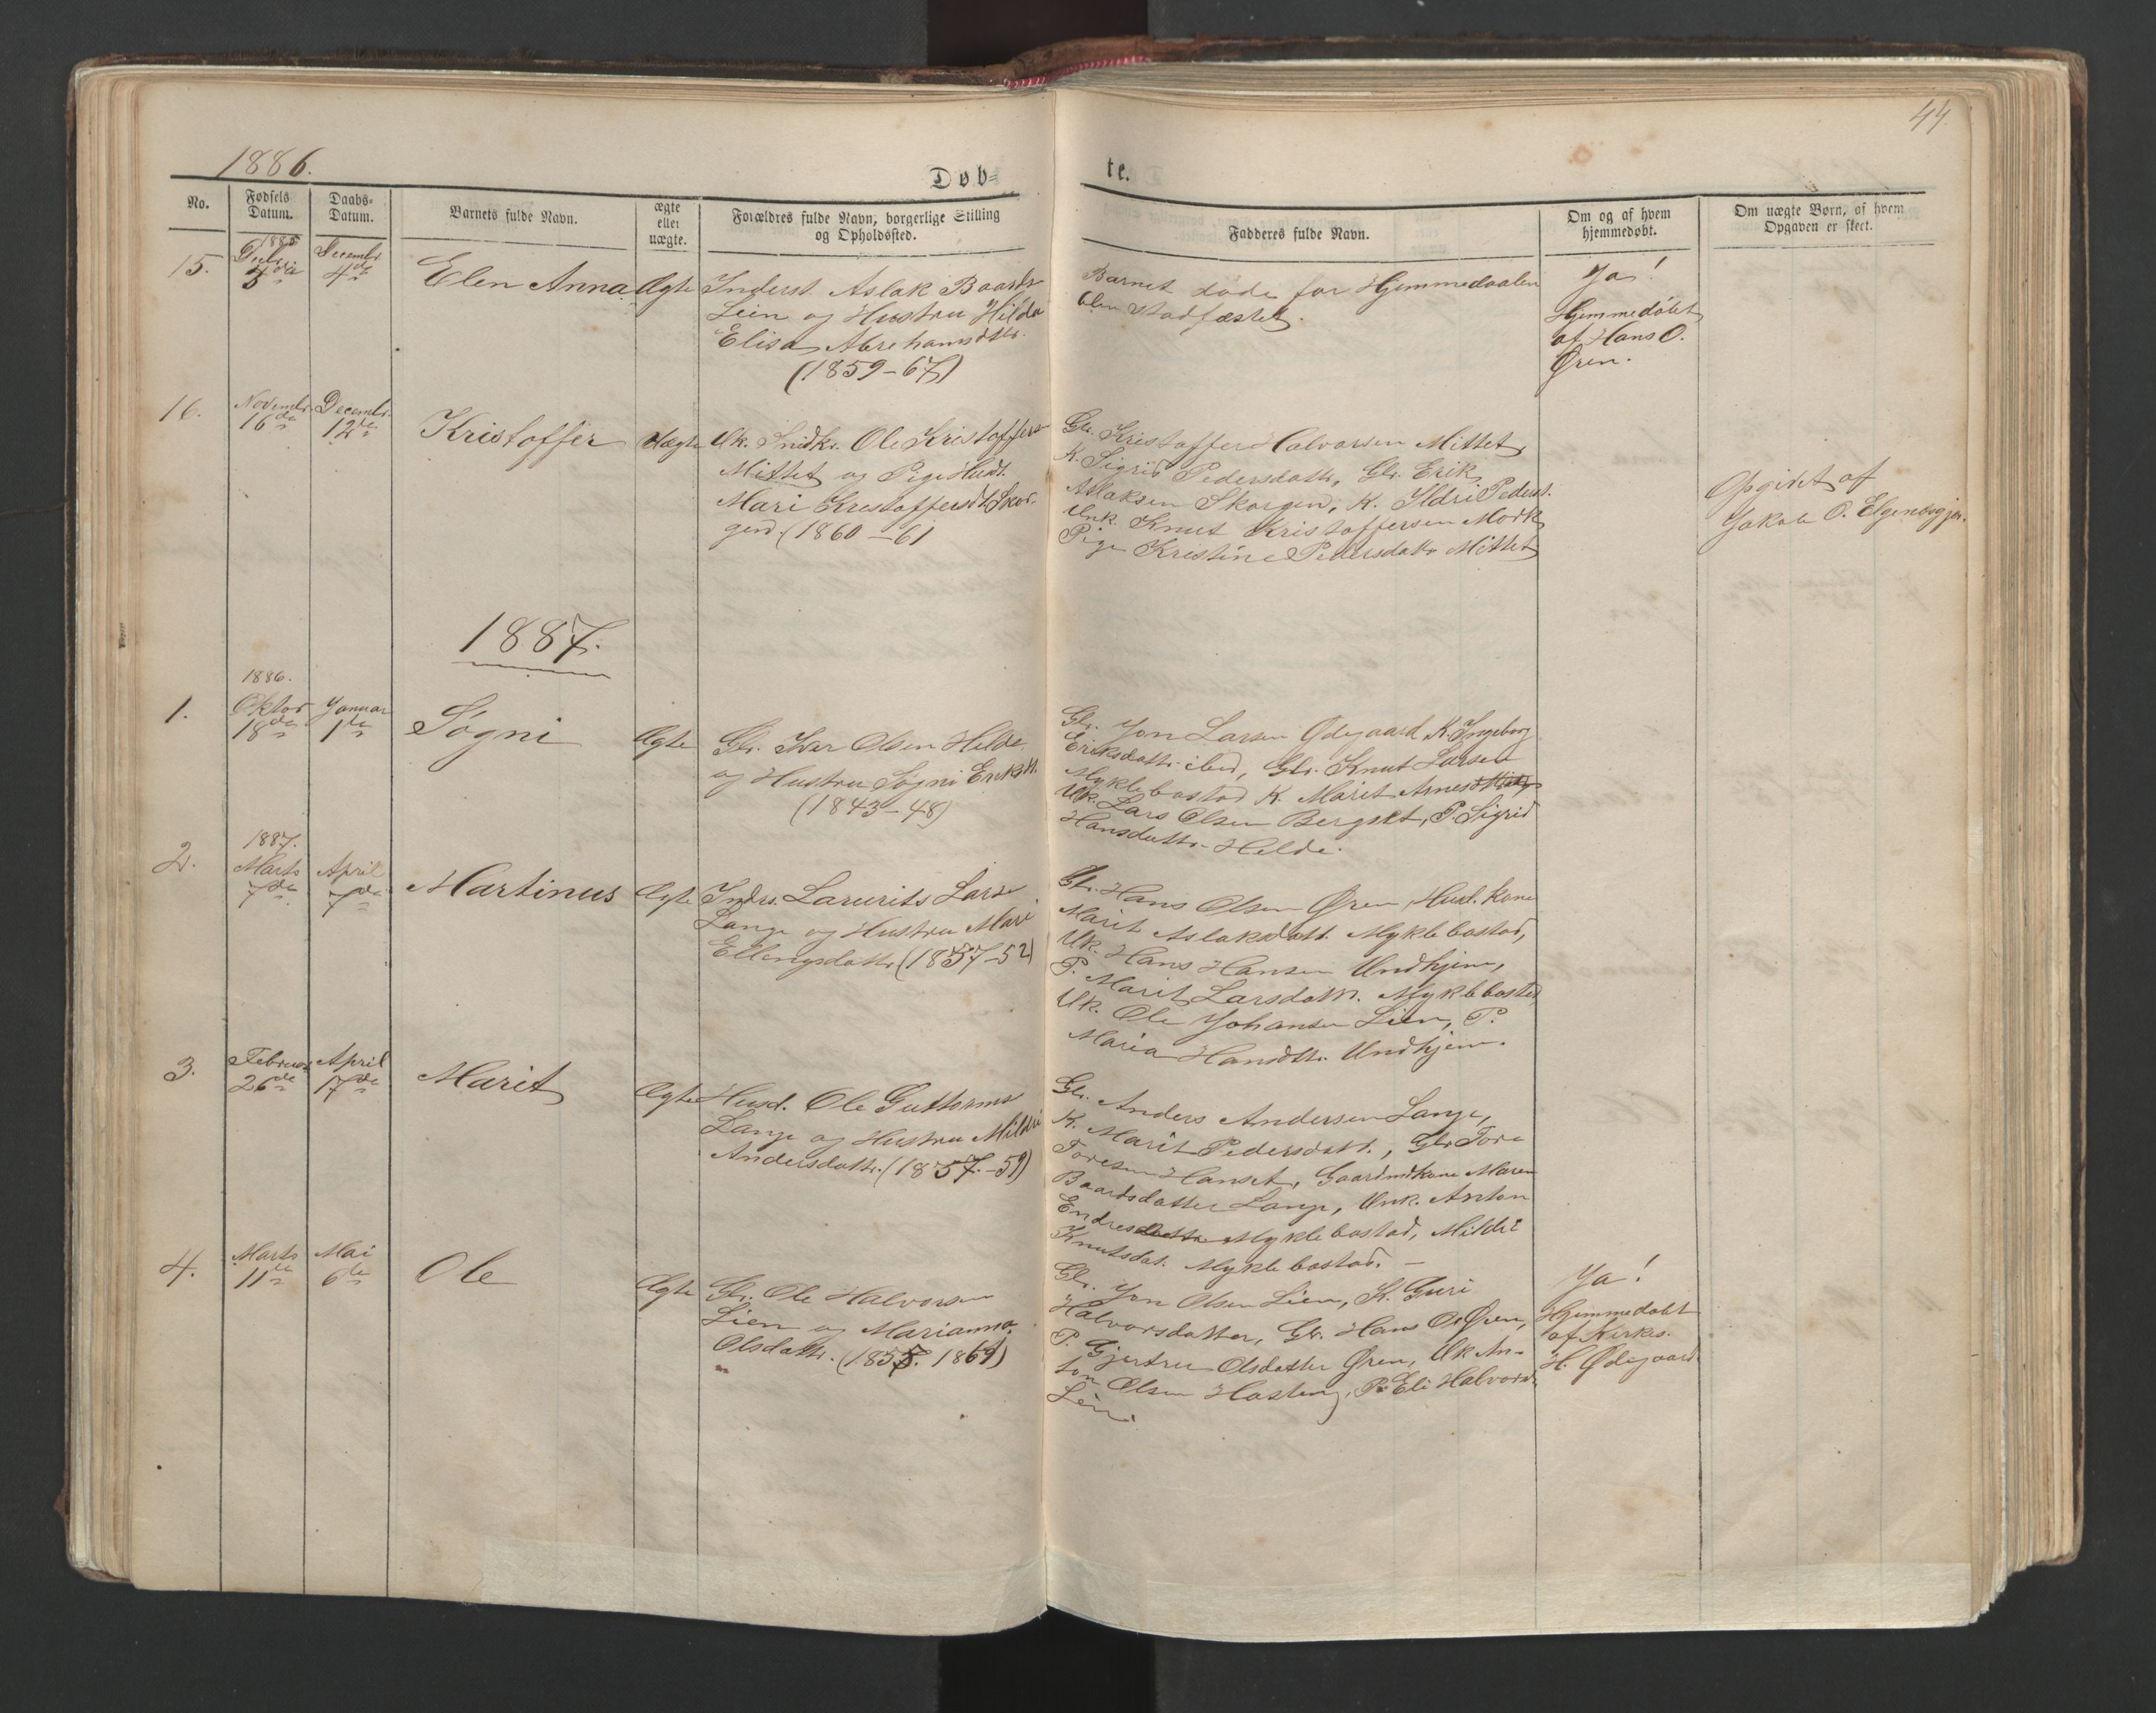 44.
1886.
Døb=
te.
No.
Fødsels
Datum.
Daabs-
Datum.
Barnets fulde Navn.
ægte
eller
uægte.
Forældres fulde Navn, borgerlige Stilling
og Opholdssted.
Fadderes fulde Navn.
Om og af hvem
hjemmedøbt.
Om uægte Børn, af hvem
Opgaven er skeet.
15.
1885
5
Decembr
4de
Elen Anna
Ægte
Inderst. Aslak Baards
Lien og Hustru Hilda
Elisa Abrehamsdtr.
(1859-67)
Barnet døde før Hjemmedaaben
blev stadfæstet.
Ja!
Hjemmedøbt
af Hans O.
Øren.
16.
Novembr.
16de
Decembr.
12te
Kristoffer
Uægte
Uk. Snedkr. Ole Kristoffers
Mittet og Pige Husdt.
Mari Kristoffersdt Skor-
gen. (1860-61
Gbr. Kristoffer Halvorsen Mittet
K. Sigrid Pedersdattr, Gbr. Erik
Aslaksen Skorgen, K. Ildri Pederst.
Unk. Knut Kristoffersen Mork
Pige Kristine Pedersdatr Mittet
Opgivet af
Jakob O. Elgenæsgjer.
1887.
1.
1886.
Oktobr
18de
Januar
1te
Søgni
Ægte
Gbr. Iver Olsen Helde
og Hustru Søgni Eriksdt.
(1843-48)
Gbr. Jon Larsen Ødegaard K. Ingeborg
Eriksdattr ibid, Gbr. Knut Larsen
Myklebostad K. Marit Arnesdt
Uk. Lars Olsen Bergset, P. Sigrid
Hansdattr. Helde.
2.
1887.
Marts
7de
April
7de
Martinus
Ægte
Indrs. Laurits Lars
Lange og Hustru Mari
Ellengsdattr (1857-52)
Gbr. Hans Olsen Øren, Husd. kone
Marit Aslaksdatt. Myklebostad,
Uk. Hans Hansen Undhjem,
P. Marit Larsdattr. Myklebostad
Uk. Ole Johansen Lien, P.
Maria Hansdtr. Undhjem.
3.
Februar
26de
April
17de
Marit
Ægte
Husd. Ole Guttorms
Lange og Hustru Mildri
Andersdattr. (1857.-59)
Gbr. Anders Andersen Lange,
K. Marit Pedersdatt., Gbr Tore
Toresen Hanset, Gaardmdkone Maren
Baardsdatter Lange, Unk. Anton
Endres Myklebostad, Mildri
Knutsdat. Myklebostad. -
4.
Marts
11te
Mai
6te
Ole
Ægte
Gbr. Ole Halvorsen
Lien og Marianna
Olsdattr. (1855. 1869)
Gbr. Jon Olsen Lien, K. Guri
Halvorsdatter, Gbr. Hans O. Øren,
P. Gjertru Olsdatter Øren, Uk An-
ton Olsen Hasteng, P. Eli Halvorsd.
Lien.
Ja!
Hjemmedøbt
af Kirks.
H. Ødegaard